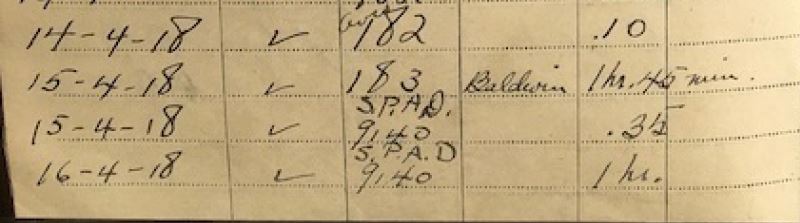 14-4-18 ✓ Avro 182 .10
15-4-18 ✓ 183 Baldwin 1 hr. 45 min.
15-4-18 ✓ S.P.A.D. 9140 .35
16-4-18 ✓ S.P.A.D 9140 1 hr.